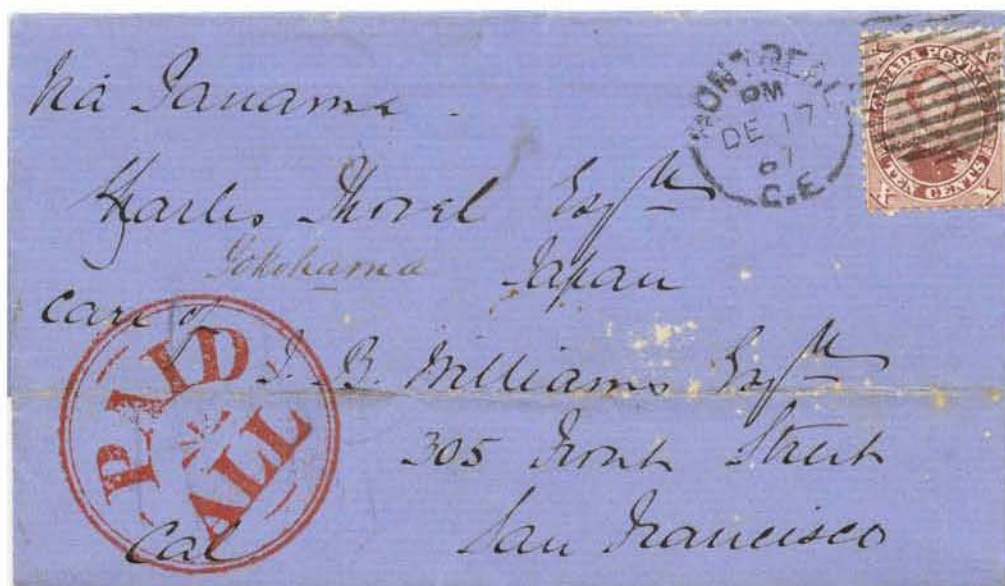 Via Panama.
MONTREAL
PM
DE 17
67
C.E
CANADA POSTAGE
TEN CENTS
Esqre
Yokohama Japan
Care of
J. B. Williams Esqre
305 Front Street
San Francisco
Cal
PAID
ALL